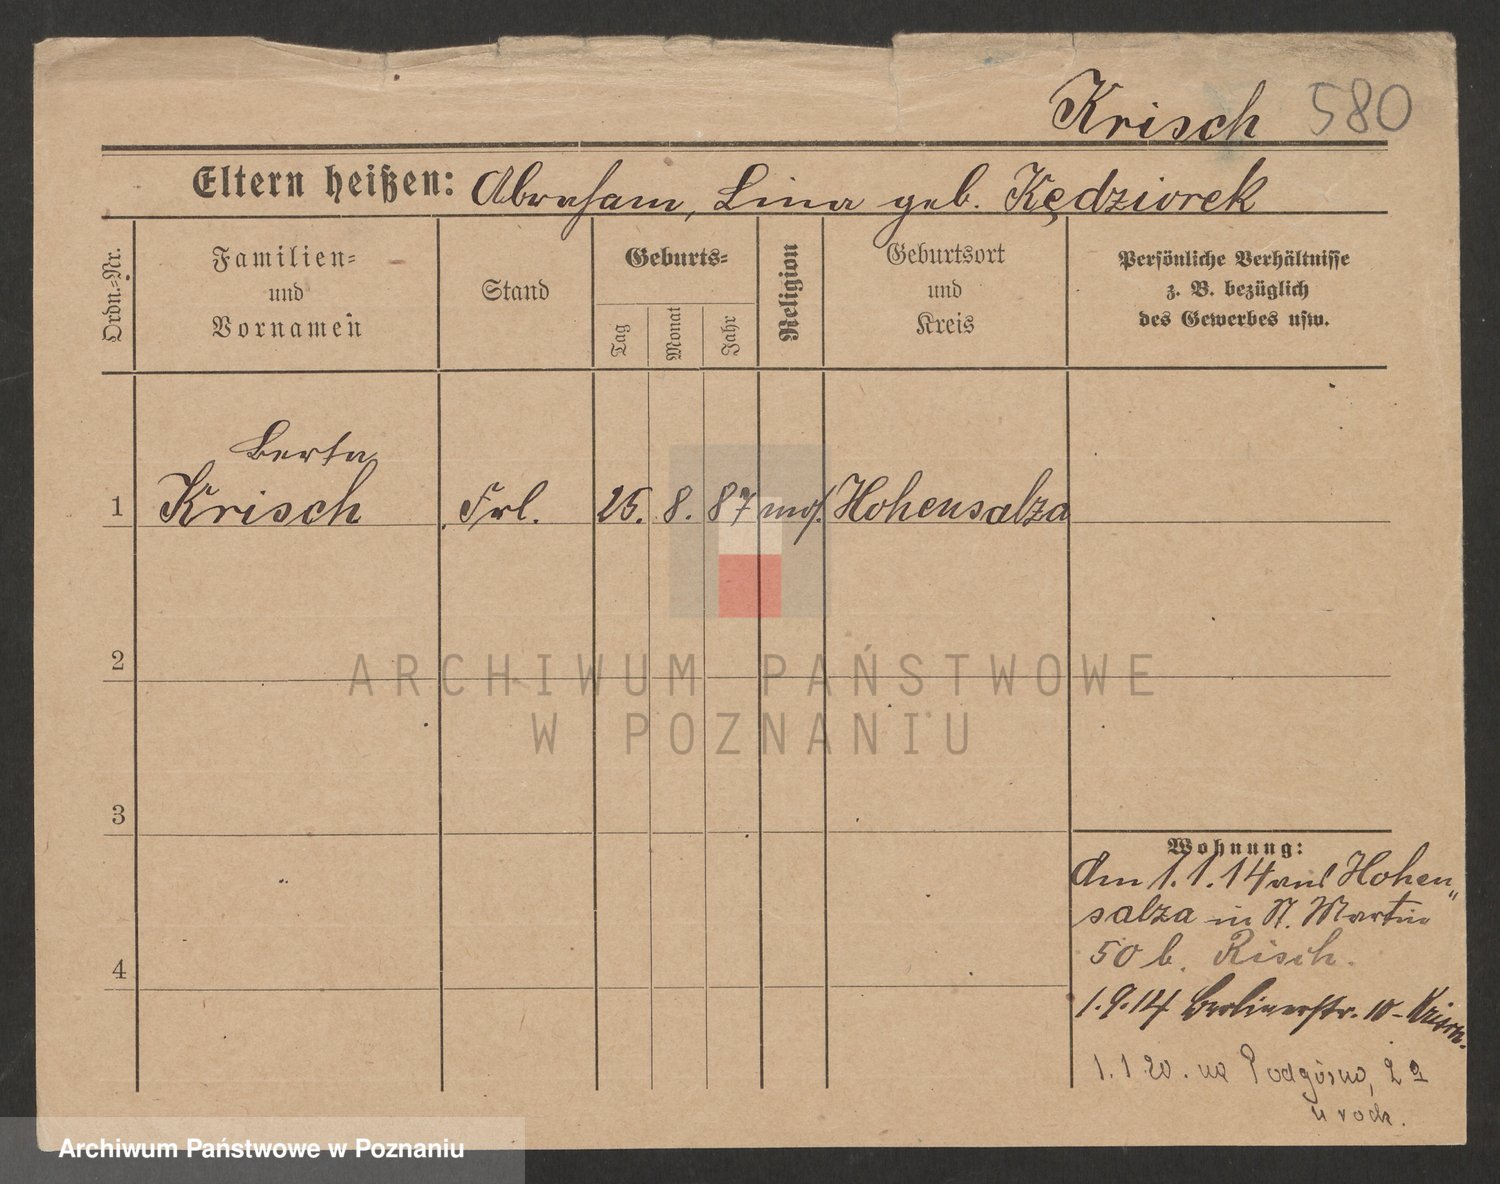 Krisch 580
Eltern heißen: Abraham, Lina geb. Kędziorek
Ordn.=Nr.
Familien=
und
Vornamen
Stand
Geburts=
Tag
Monat
Jahr
Religion
Geburtsort
und
Kreis
Persönliche Verhältnisse
z. B. bezüglich
des Gewerbes usw.
Berta
1 Krisch Frl. 25. 8. 87 mos. Hohensalza
2
3
4
Wohnung:
Am 1.1.14 aus Hohen„
salza in St. Martin
50 b. Risch.
1.9.14 Berlinerstr. 10 -
1.1.20. na Podgórną,
u rodz.
ARCHIWUM PAŃSTWOWE
W POZNANIU
Archiwum Państwowe w Poznaniu